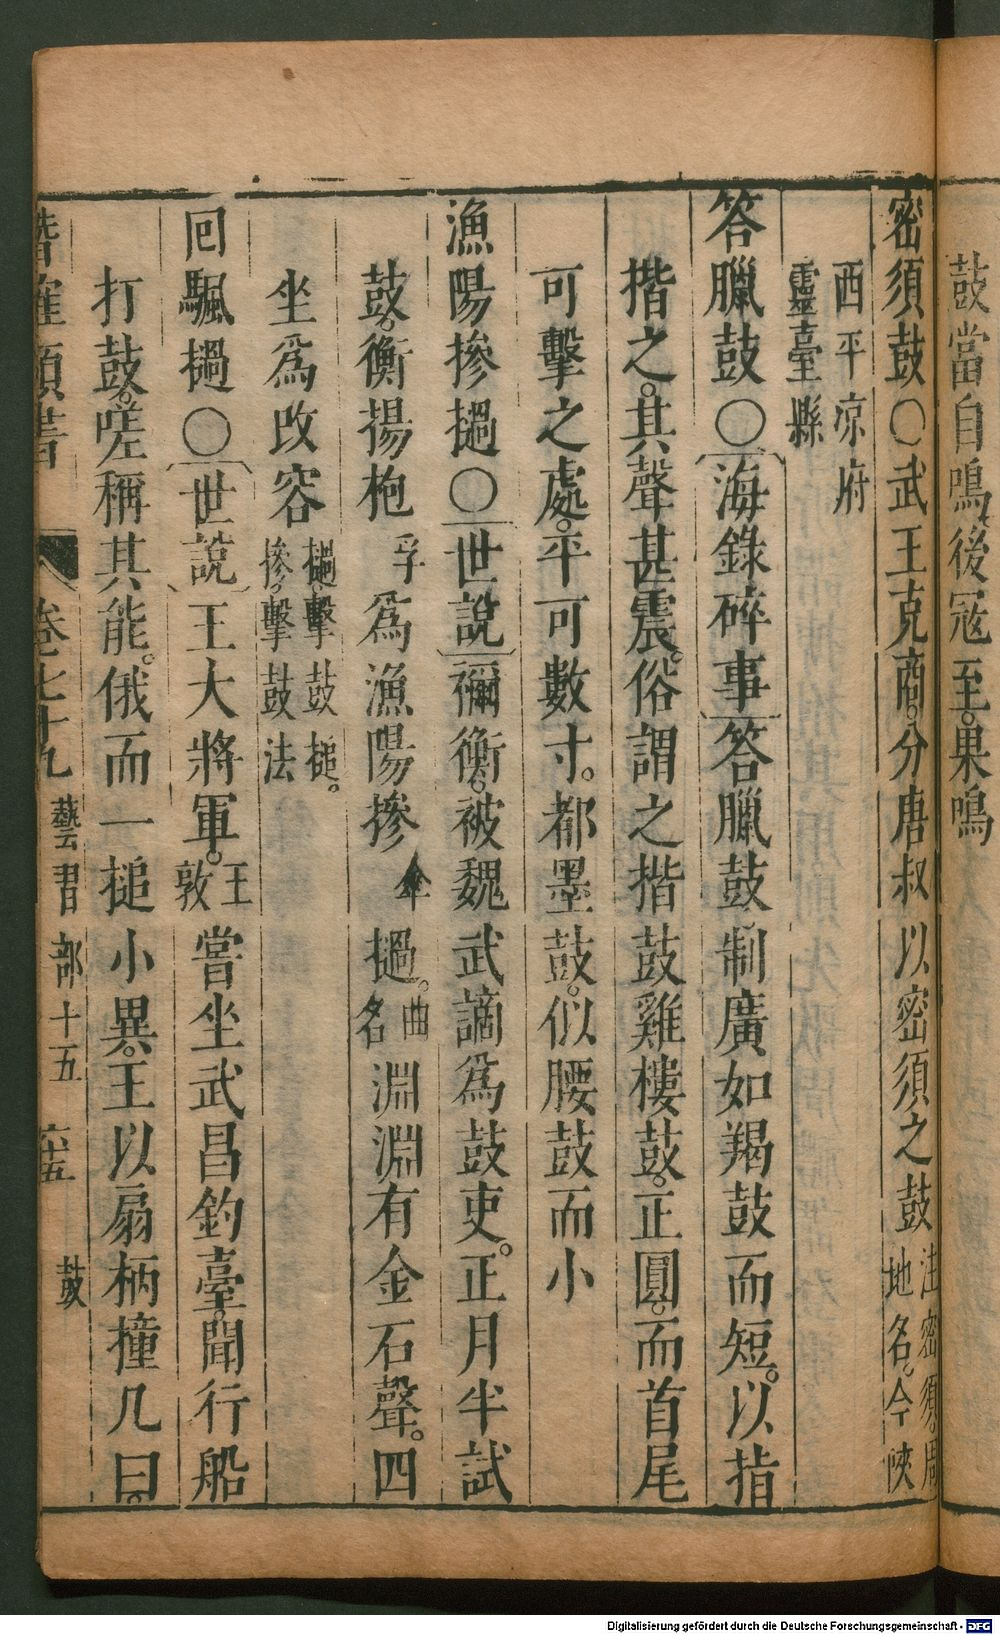 鼓當自鳴後寇至果鳴
密須鼓○武王克商。分唐叔以密須之鼓 注密須。周地名。今陝
西平凉府靈臺縣
答臘鼓○海錄碎事答臘鼓制廣如羯鼓而短。以指
揩之。其聲甚震。俗謂之揩鼓雞樓鼓。正圓。而首尾
可擊之處。平可數寸。都墨鼓。似腰鼓而小
漁陽摻撾○世說禰衡。被魏武謫爲鼓吏。正月半試
鼓。衡揚枹 孚 爲漁陽摻 傘 撾。曲名 淵淵有金石聲。四
坐爲改容 撾。擊鼓槌。摻。擊鼓法
回颿撾○世說王大將軍。王敦 嘗坐武昌釣臺。聞行船
打鼓。嗟稱其能。俄而一槌小異。王以扇柄撞几曰。
卷七十九 藝習部十五 六十五 鼓
Digitalisierung gefördert durch die Deutsche Forschungsgemeinschaft - DFG